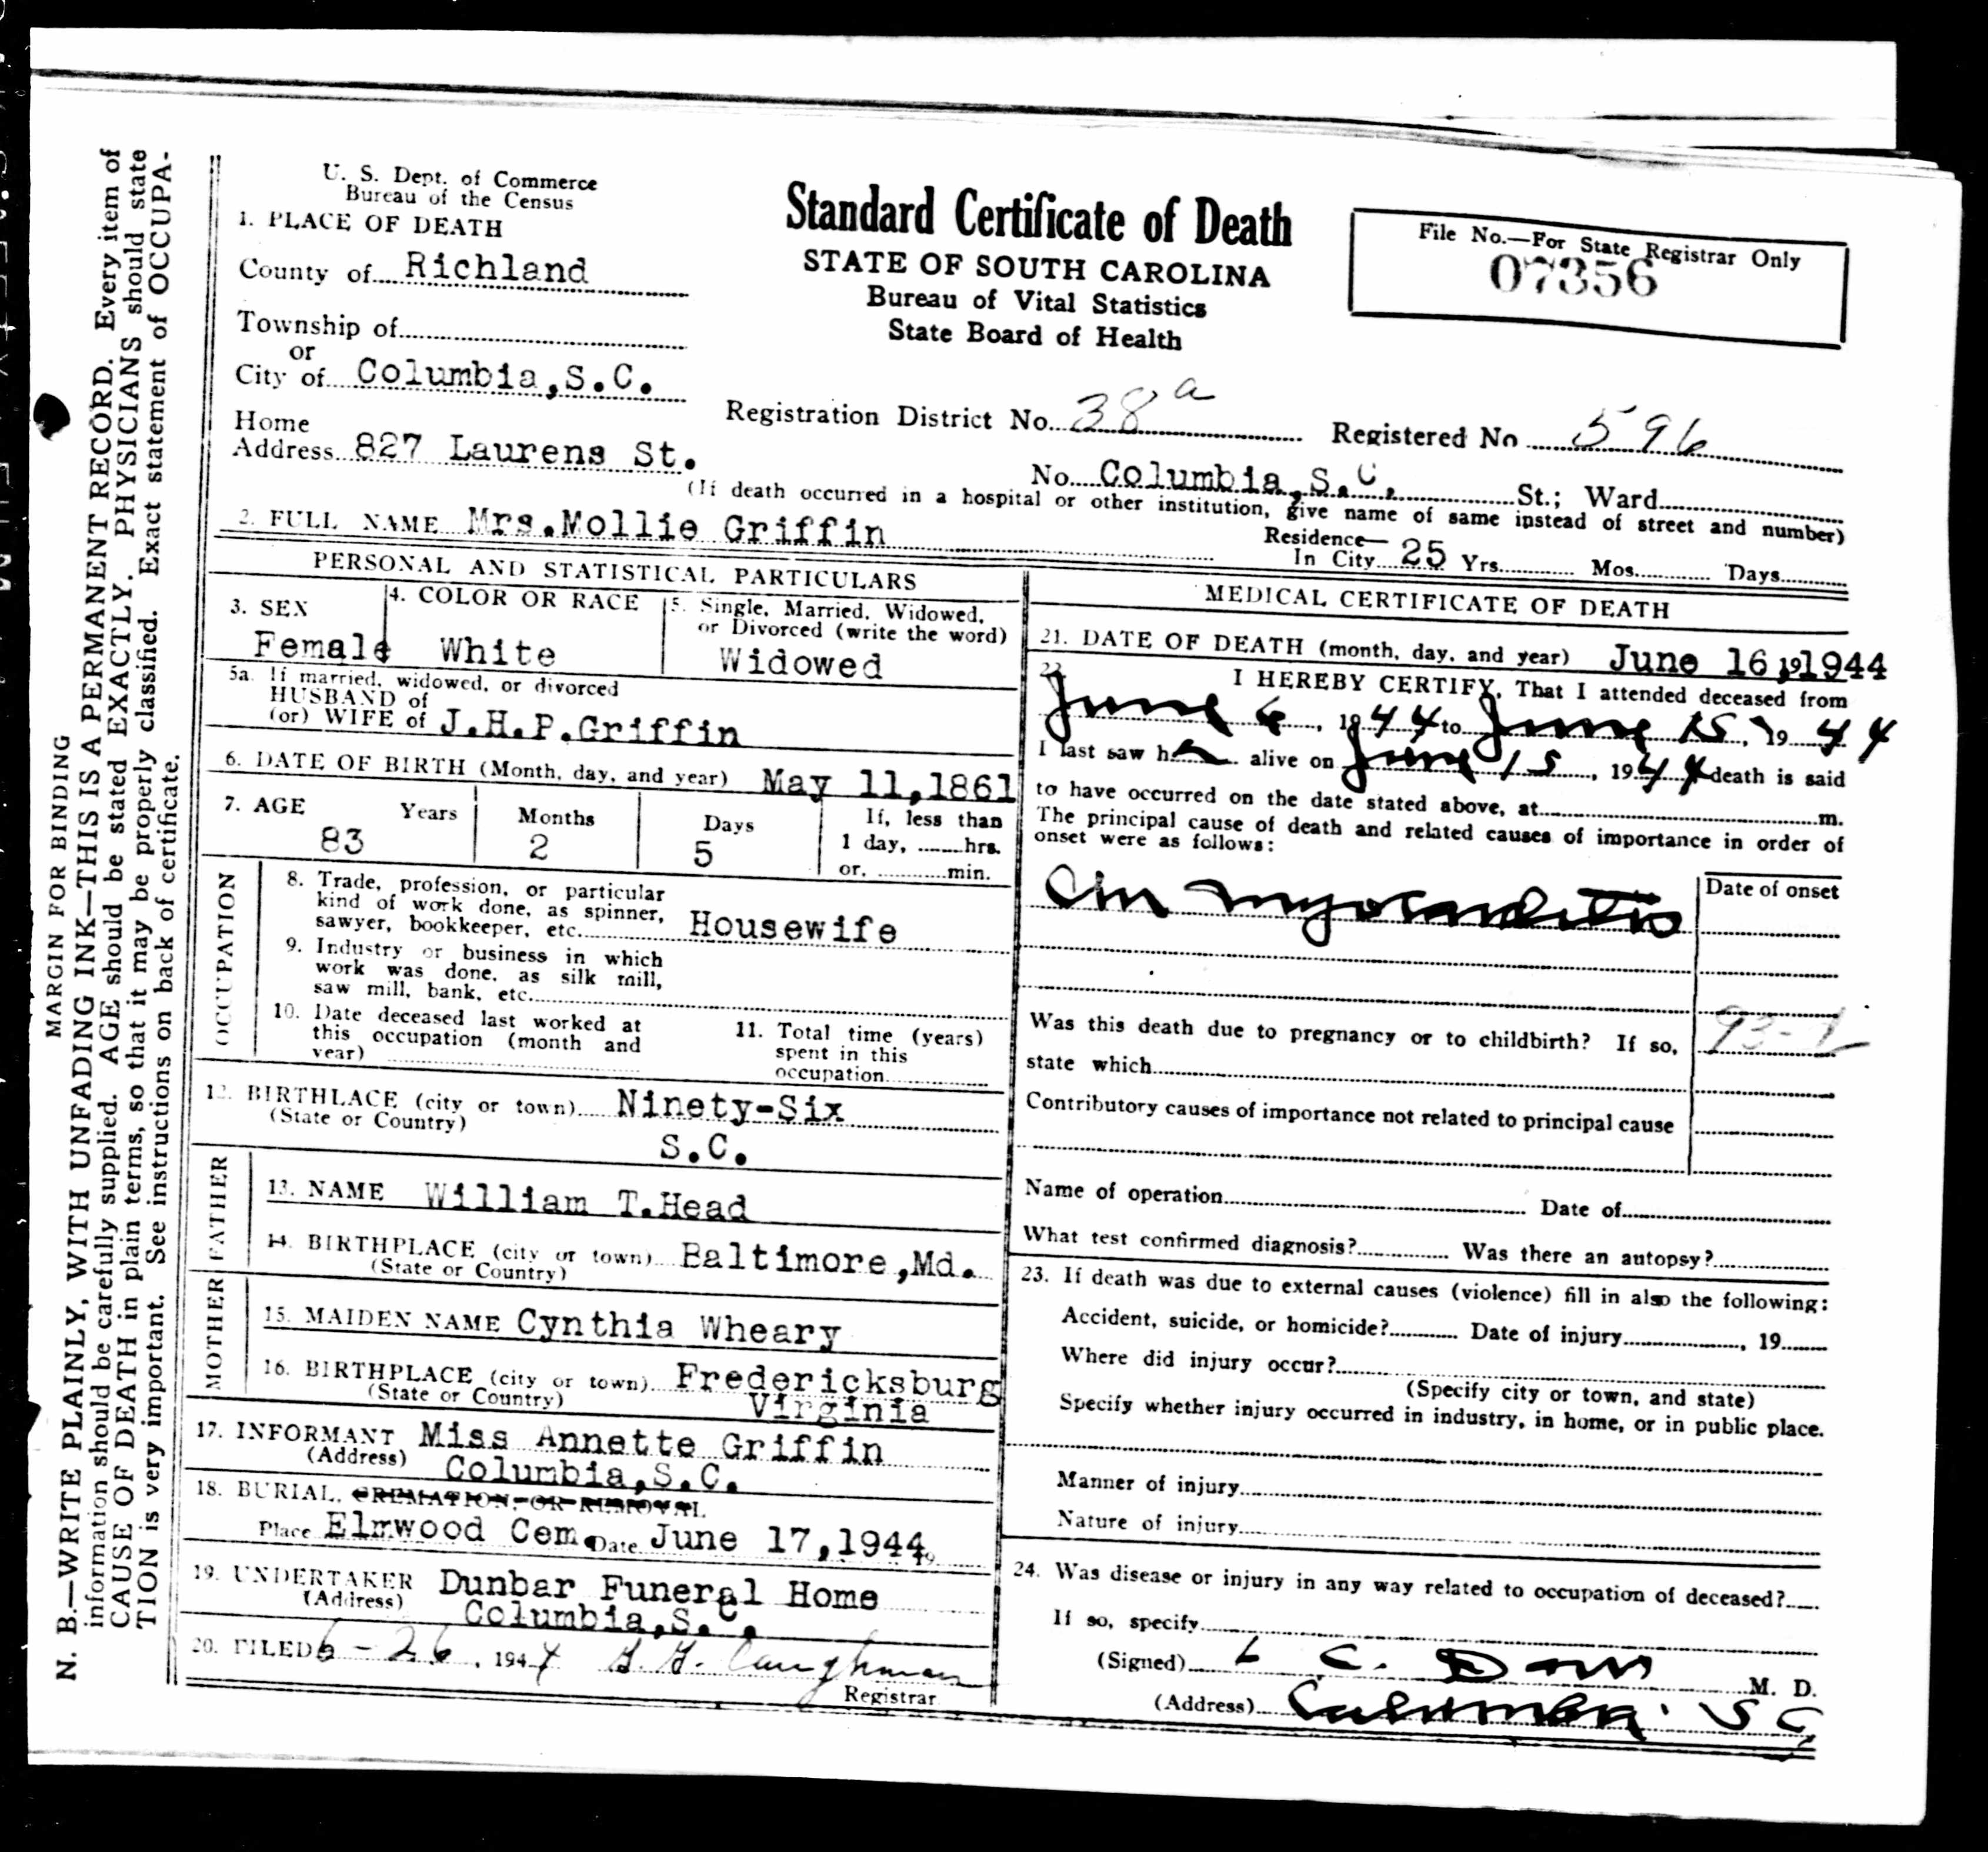 MARGIN FOR BINDING
N. B.—WRITE PLAINLY, WITH UNFADING INK—THIS IS A PERMANENT RECORD. Every item of
information should be carefully supplied. AGE should be stated EXACTLY. PHYSICIANS should state
CAUSE OF DEATH in plain terms, so that it may be properly classified. Exact statement of OCCUPA-
TION is very important. See instructions on back of certificate.
U. S. Dept. of Commerce
Bureau of the Census
Standard Certificate of Death
STATE OF SOUTH CAROLINA
Bureau of Vital Statistics
State Board of Health
File No.—For State Registrar Only
07356
1. PLACE OF DEATH
County of Richland
Township of
or
City of Columbia,S.C.
Registration District No. 38 a
Registered No 596
Home
Address 827 Laurens St.
No. Columbia,S.C. St.; Ward
(If death occurred in a hospital or other institution, give name of same instead of street and number)
2. FULL NAME Mrs.Mollie Griffin
Residence—
In City 25 Yrs. Mos. Days
PERSONAL AND STATISTICAL PARTICULARS
3. SEX
Female
4. COLOR OR RACE
White
5. Single, Married, Widowed,
or Divorced (write the word)
Widowed
5a. If married, widowed, or divorced
HUSBAND of
(or) WIFE of J.H.P.Griffin
6. DATE OF BIRTH (Month, day, and year) May 11,1861
7. AGE Years Months Days If, less than
83 2 5 1 day, hrs.
or, min.
OCCUPATION
8. Trade, profession, or particular
kind of work done, as spinner,
sawyer, bookkeeper, etc. Housewife
9. Industry or business in which
work was done, as silk mill,
saw mill, bank, etc.
10. Date deceased last worked at
this occupation (month and
year)
11. Total time (years)
spent in this
occupation
12. BIRTHLACE (city or town) Ninety-Six
(State or Country)
S.C.
FATHER
13. NAME William T.Head
14. BIRTHPLACE (city or town) Baltimore,Md.
(State or Country)
MOTHER
15. MAIDEN NAME Cynthia Wheary
16. BIRTHPLACE (city or town) Fredericksburg
(State or Country) Virginia
17. INFORMANT Miss Annette Griffin
(Address) Columbia,S.C.
18. BURIAL, CREMATION, OR REMOVAL
Place Elmwood Cem. Date June 17,1944 19
19. UNDERTAKER Dunbar Funeral Home
(Address) Columbia,S.C.
20. FILED 6-26, 1944
Registrar
MEDICAL CERTIFICATE OF DEATH
21. DATE OF DEATH (month, day, and year) June 16,191944
22. I HEREBY CERTIFY, That I attended deceased from
June 6, 1944 to June 15, 1944
I last saw her alive on June 15, 1944 death is said
to have occurred on the date stated above, at m.
The principal cause of death and related causes of importance in order of
onset were as follows:
Date of onset
myocarditis
Was this death due to pregnancy or to childbirth? If so,
state which
Contributory causes of importance not related to principal cause
Name of operation Date of
What test confirmed diagnosis? Was there an autopsy?
23. If death was due to external causes (violence) fill in also the following:
Accident, suicide, or homicide? Date of injury, 19
Where did injury occur?
(Specify city or town, and state)
Specify whether injury occurred in industry, in home, or in public place.
Manner of injury
Nature of injury
24. Was disease or injury in any way related to occupation of deceased?
If so, specify
(Signed) M. D.
(Address) Columbia S C